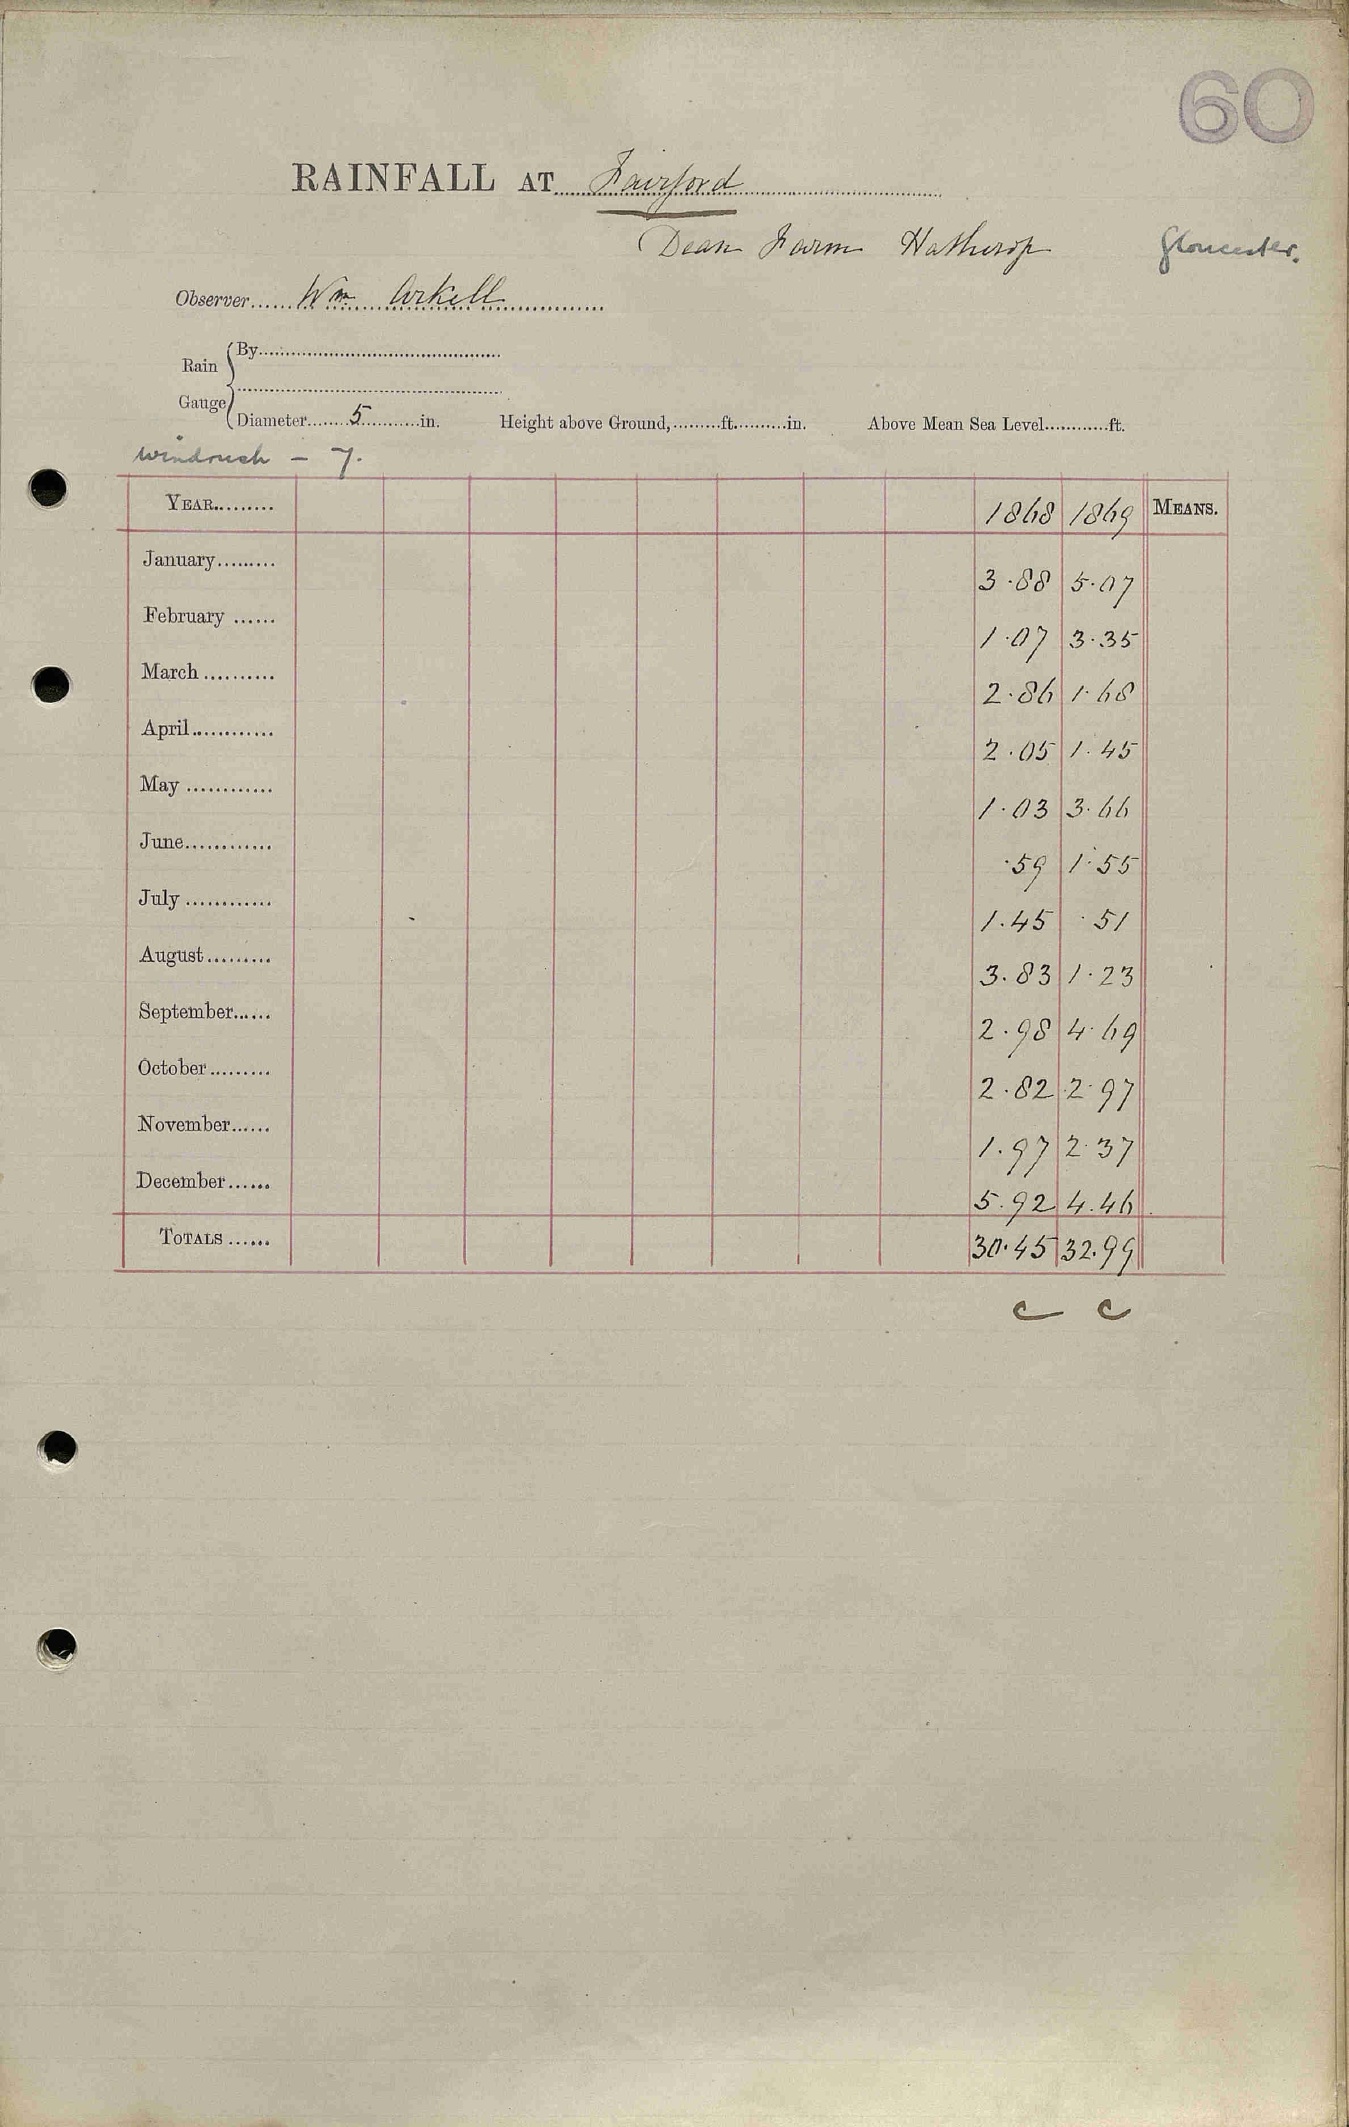 60
RAINFALL AT Fairford
Dean Farm Hatherop Gloucester.
Observer Wm Arkell
Rain Gauge By
Diameter 5 in. Height above Ground, ft. in. Above Mean Sea Level ft.
Windrush - 7.
YEAR 1868 1869 MEANS.
January 3.88 5.07
February 1.07 3.35
March 2.86 1.68
April 2.05 1.45
May 1.03 3.66
June .59 1.55
July 1.45 .51
August 3.83 1.23
September 2.98 4.69
October 2.82 2.97
November 1.97 2.37
December 5.92 4.46
TOTALS 30.45 32.99
c c